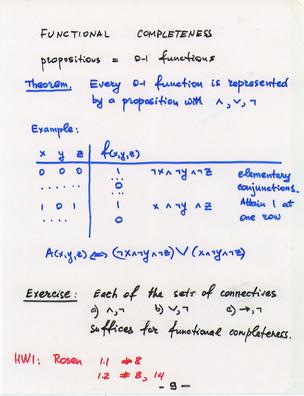 FUNCTIONAL COMPLETENESS
propositions = 0-1 functions
Theorem. Every 0-1 function is represented
by a proposition with ∧, ∨, ¬
Example:
x y z f(x,y,z)
0 0 0 1 ¬x∧¬y∧¬z elementary
...... 0 conjunctions.
1 0 1 1 x ∧ ¬y ∧ z Attain 1 at
...... 0 one row
A(x,y,z) ⟺ (¬x∧¬y∧¬z) ∨ (x∧¬y∧z)
Exercise: Each of the sets of connectives
a) ∧,¬ b) ∨,¬ c) →,¬
suffices for functional completeness.
HW1: Rosen 1.1 #8
1.2 #8, 14
- 9 -